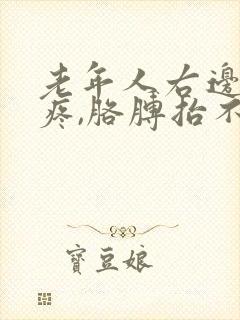 老年人右邊
疼,胳膊抬不
寶豆娘